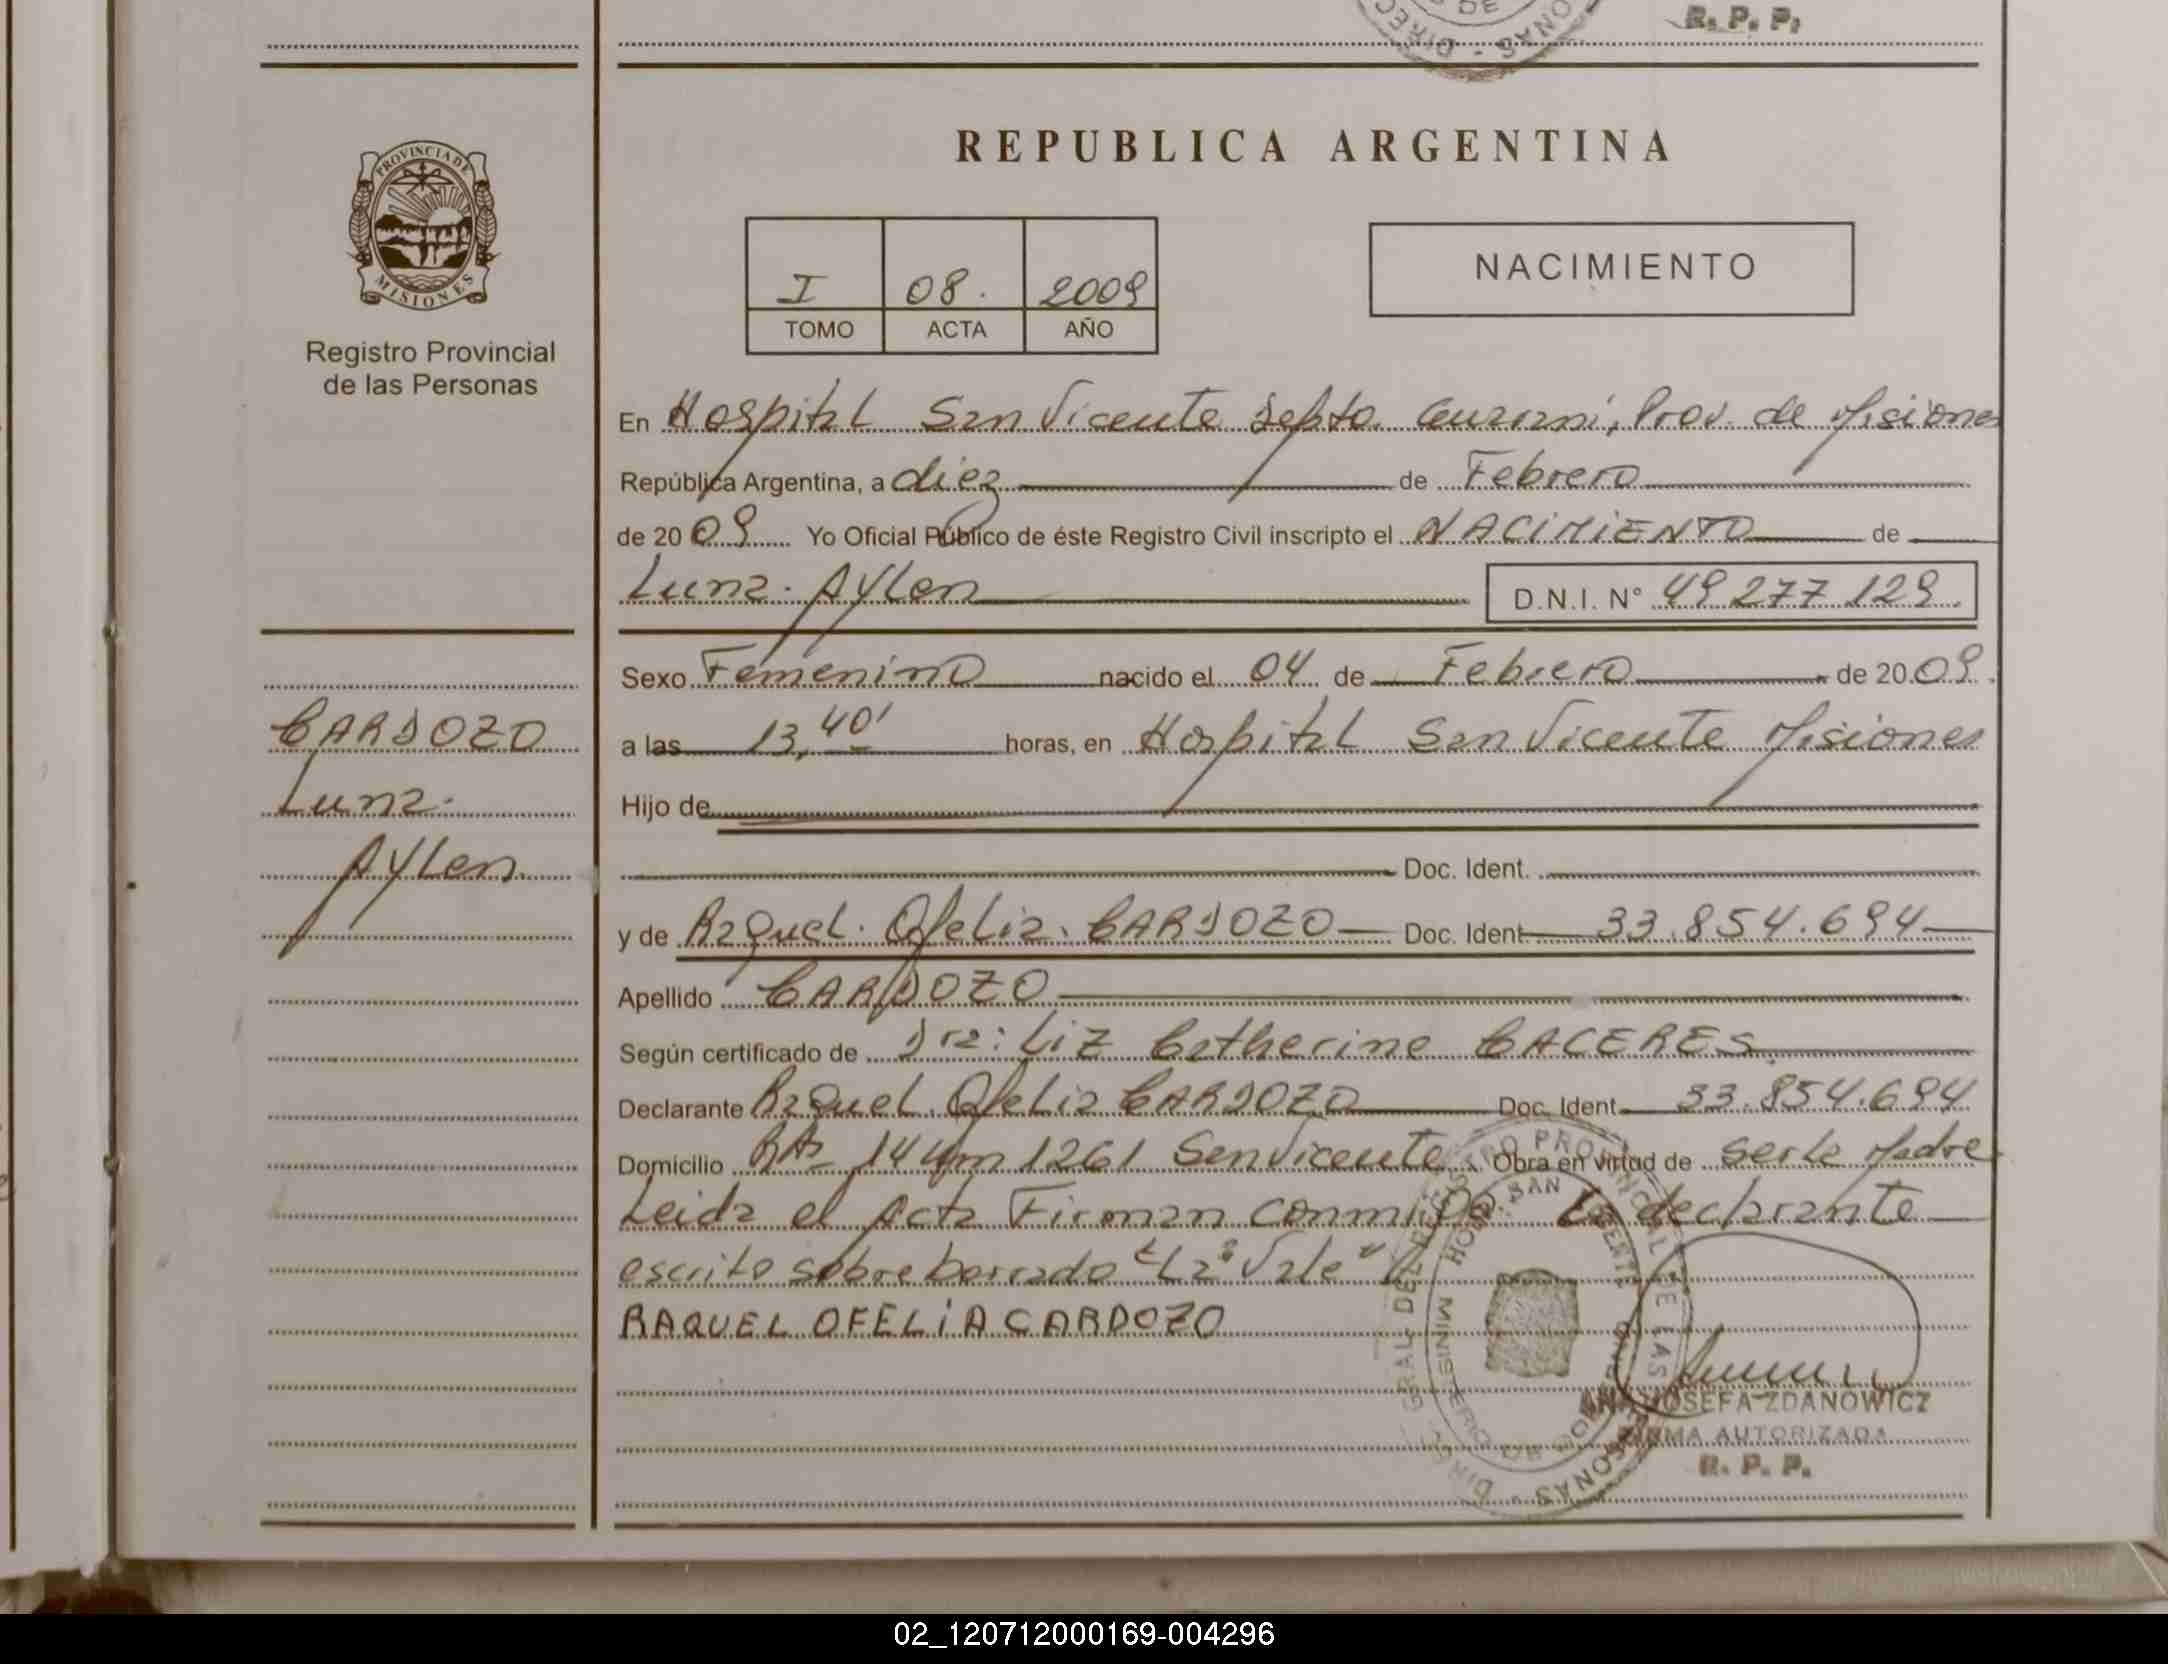 R. P. P.
REPUBLICA ARGENTINA
PROVINCIA DE
MISIONES
Registro Provincial
de las Personas
I 08. 2009
TOMO ACTA AÑO
NACIMIENTO
En Hospital San Vicente Depto. Guarani, Prov. de Misiones
República Argentina, a diez de Febrero
de 2009 Yo Oficial Público de éste Registro Civil inscripto el NACIMIENTO de
Luna. Aylen D.N.I. N° 49 277 129.
Sexo Femenino nacido el 04 de Febrero de 2009.
CARDOZO
Luna.
Aylen.
a las 13,40' horas, en Hospital San Vicente Misiones
Hijo de
Doc. Ident.
y de Raquel. Ofelia. CARDOZO Doc. Ident 33.854.694
Apellido CARDOZO
Según certificado de Dra: Liz Catherine CACERES.
Declarante Raquel. Ofelia CARDOZO Doc. Ident. 33.854.694
Domicilio 14 Km 1261 San Vicente. Obra en virtud de ser la Madre
Leida el Acta Firman conmigo. La declarante
escrito sobre borrado "La" Vale"
RAQUEL OFELIA CARDOZO
ANA JOSEFA ZDANOWICZ
FIRMA AUTORIZADA
R. P. P.
02_120712000169-004296